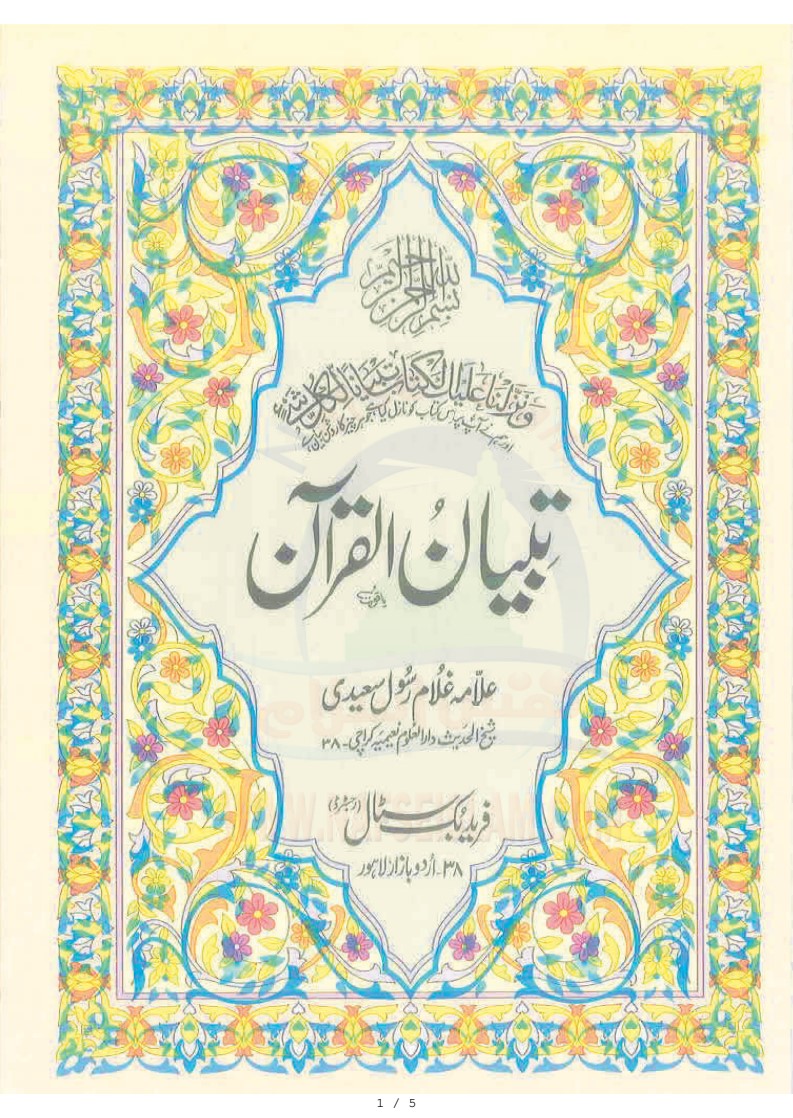 بسم اللہ الرحمن الرحیم
وَنَزَّلْنَا عَلَيْكَ الْكِتَابَ تِبْيَانًا لِّكُلِّ شَيْءٍ
اور ہم نے آپ پر اس کتاب کو نازل کیا ہے جو ہر چیز کا روشن بیان ہے
تِبیانُ القرآن
علّامہ غلام رسُول سعیدی
شیخ الحدیث دارالعلوم نعیمیہ کراچی۔ ۳۸
فرید بُک سٹال (رجسٹرڈ)
۳۸۔ اُردو بازار لاہور
1 / 5